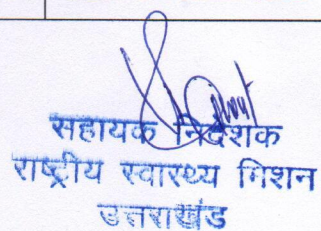 सहायक निदेशक
राष्ट्रीय स्वास्थ्य मिशन
उत्तराखंड